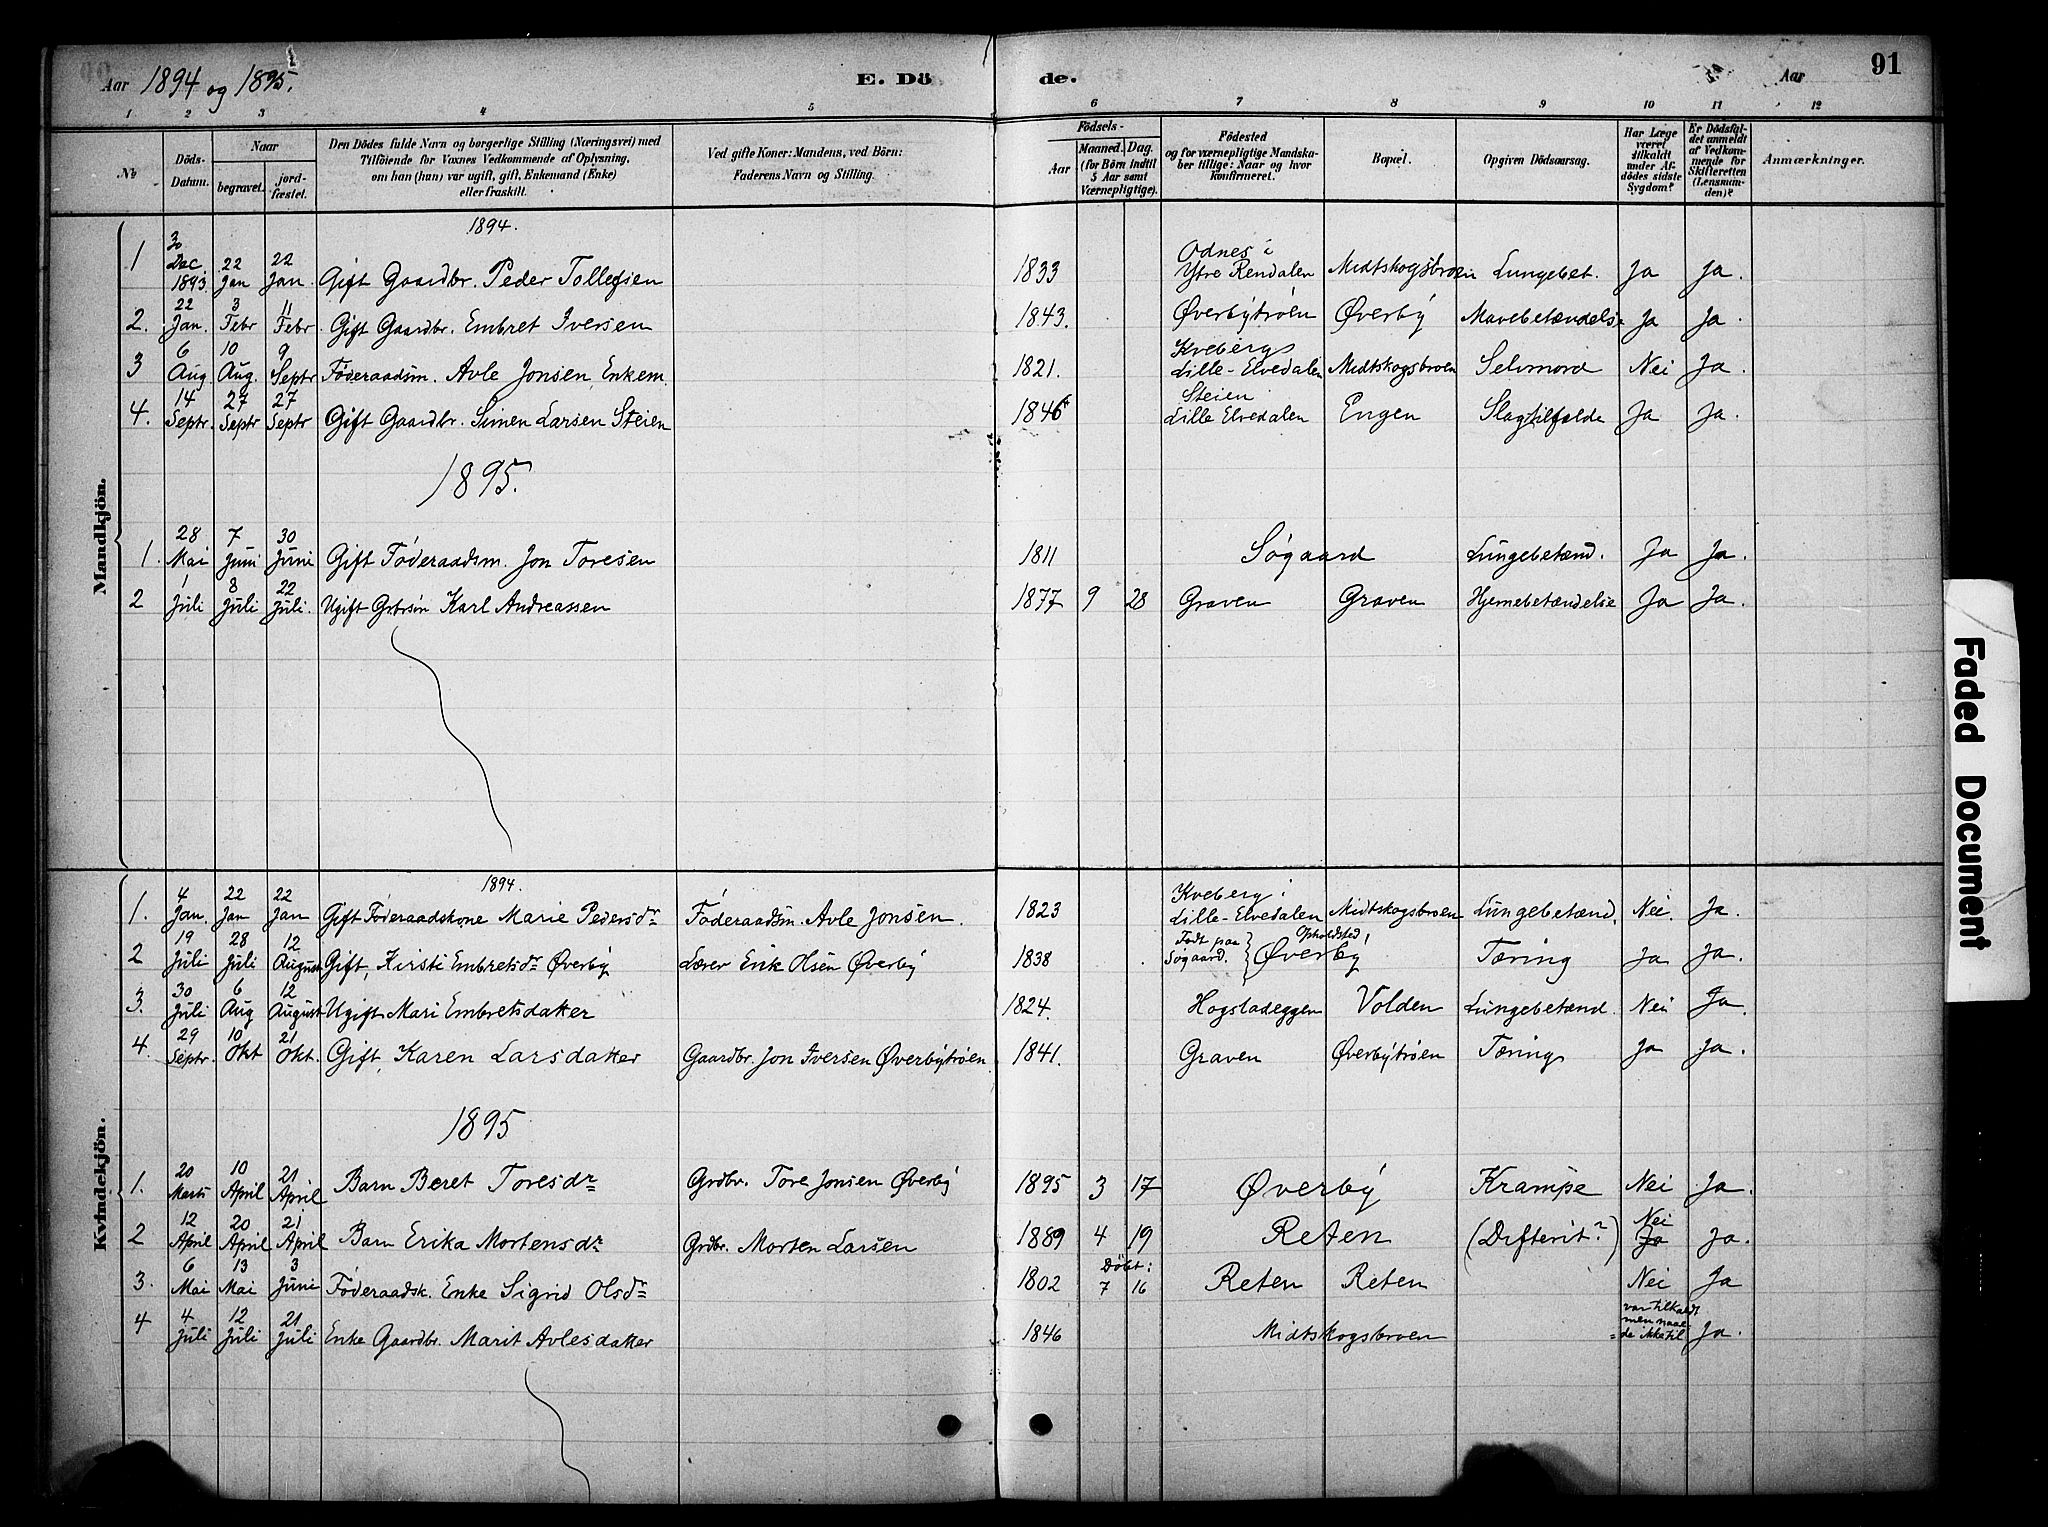 Aar 1894 og 1895.
E. Dö de.
Aar
91
1 2 3 4 5 6 7 8 9 10 11 12
No
Döds-Datum.
Naar
begravet.
jord-fæstet.
Den Dödes fulde Navn og borgerlige Stilling (Næringsvei) med
Tilföiende for Voxnes Vedkommende af Oplysning,
om han (hun) var ugift, gift, Enkemand (Enke)
eller fraskilt.
Ved gifte Koner: Mandens, ved Börn:
Faderens Navn og Stilling.
Födsels-
Aar
Maaned. Dag.
(for Börn indtil
5 Aar samt
Værnepligtige).
Födested
og for værnepligtige Mandska-
ber tillige: Naar og hvor
Konfirmeret.
Bopæl.
Opgiven Dödsaarsag.
Har Læge
været
tilkaldt
under Af-
dödes sidste
Sygdom?
Er Dödsfal-
det anmeldt
af Vedkom-
mende for
Skifteretten
(Lensman-
den)?
Anmærkninger.
Mandkjön.
1894.
1 30 Dec 1893. 22 Jan 22 Jan. Gift Gaardbr. Peder Tollefsen 1833 Odnes i Ytre Rendalen Midtskogsbroen Lungebet. Ja Ja.
2. 22 Jan. 3 Febr 11 Febr Gift Gaardbr. Embret Iversen 1843. Øverbytrøen Øverby Mavebetændelse Ja Ja.
3 6 Aug 10 Aug. 9 Septr Føderaadsm. Avle Jonsen, Enkem. 1821. Kvebergs Lille-Elvedalen Midtskogsbroen Selvmord Nei Ja.
4. 14 Septr. 27 Septr 27 Septr Gift Gaardbr. Simen Larsen Steien 1846 Steien Lille Elvedalen Engen Slagtilfælde Ja Ja.
1895.
1. 28 Mai 7 Juni 30 Juni Gift Føderaadsm. Jon Toresen 1811 Søgaard Lungebetænd. Ja Ja.
2 1 Juli 8 Juli 22 Juli. Ugift Grbrsøn Karl Andreassen 1877 9 28 Graven Graven Hjernebetændelse Ja Ja.
Kvindekjön.
1894.
1. 4 Jan. 22 Jan 22 Jan Gift Føderaadskone Marie Pedersdr Føderaadsm. Avle Jonsen. 1823 Kveberg i Lille-Elvedalen Midtskogsbroen Lungebetænd. Nei. Ja.
2 19 Juli 28 Juli 12 August Gift, Kirsti Embretsdr Øverby Lærer Erik Olsen Øverby 1838 Født paa Søgaard. Opholdsted, Øverby Tæring Ja Ja.
3. 30 Juli 6 Aug 12 August Ugift Mari Embretsdatter 1824. Hogstadeggen Volden Lungebetænd. Nei Ja.
4. 29 Septr. 10 Okt 21 Okt. Gift, Karen Larsdatter Gaardbr. Jon Iversen Øverbytrøen 1841. Graven Øverbytrøen Tæring Ja Ja.
1895
1. 20 Marts 10 April 21 April Barn Beret Toresdr Grdbr. Tore Jonsen Øverby 1895 3 17 Øverby Krampe Nei Ja.
2 12 April 20 April 21 April Barn Erika Mortensdr Grdbr. Morten Larsen 1889 4 19 Reten (Difterit?) Nei Ja Ja.
3. 6 Mai 13 Mai 3 Juni Føderaadsk. Enke Sigrid Olsdr 1802 Døbt: 7 16 Reten Reten Nei Ja
4 4 Juli 12 Juli 21 Juli Enke Gaardbr. Marit Avlesdatter 1846 Midtskogsbroen var tilkaldt men naae-de ikke til Ja.
Faded Document